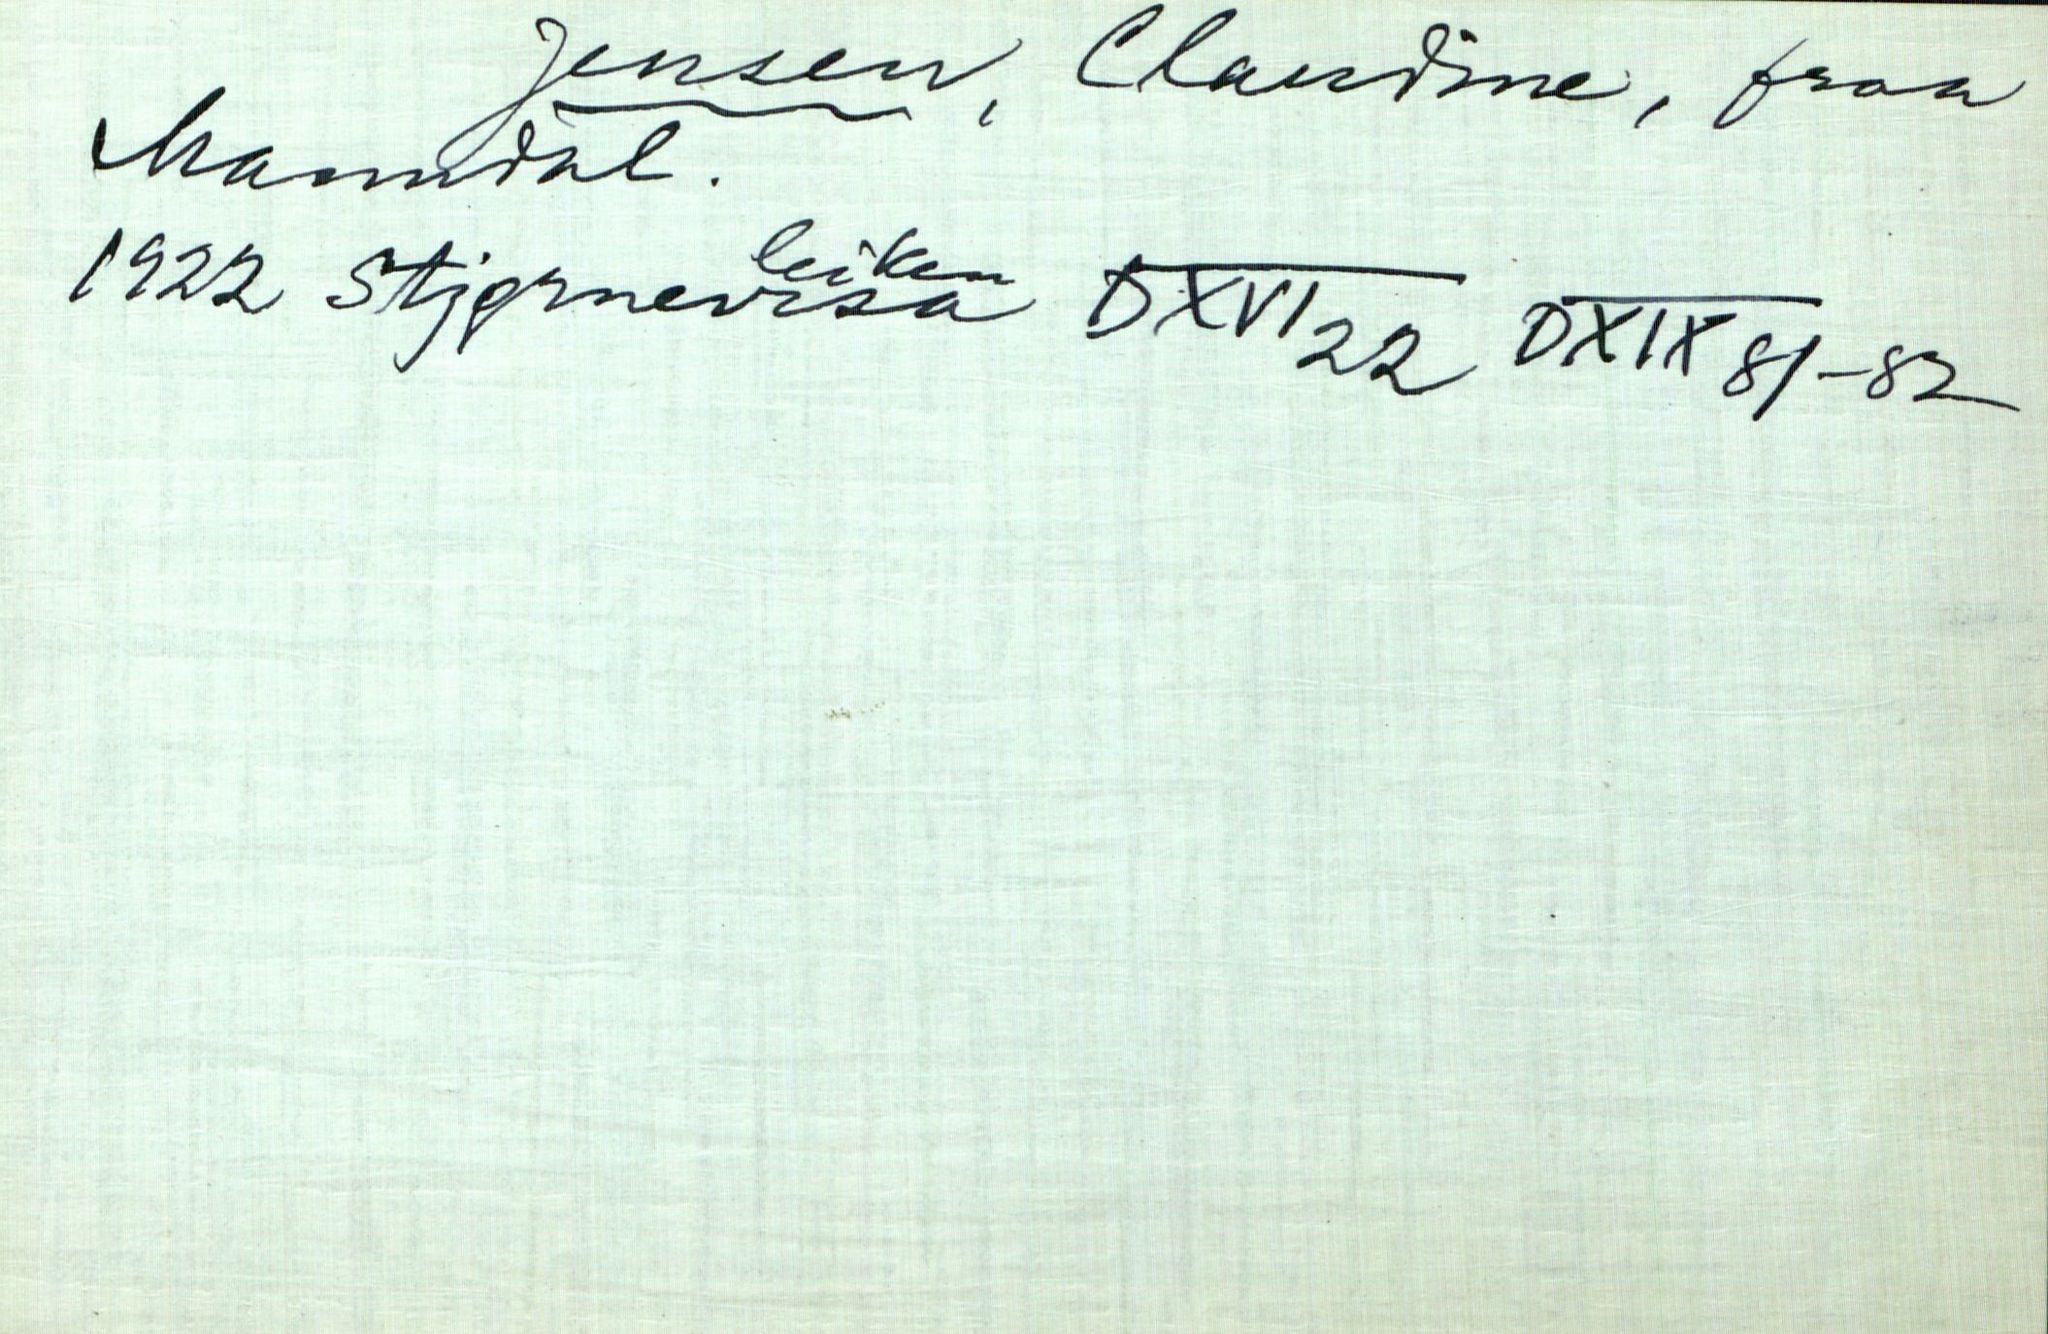 Jensen, Claudine, fraa
Manndal.
leiken
1922 Stjernevisa DXVI 22 DXIX 81-82